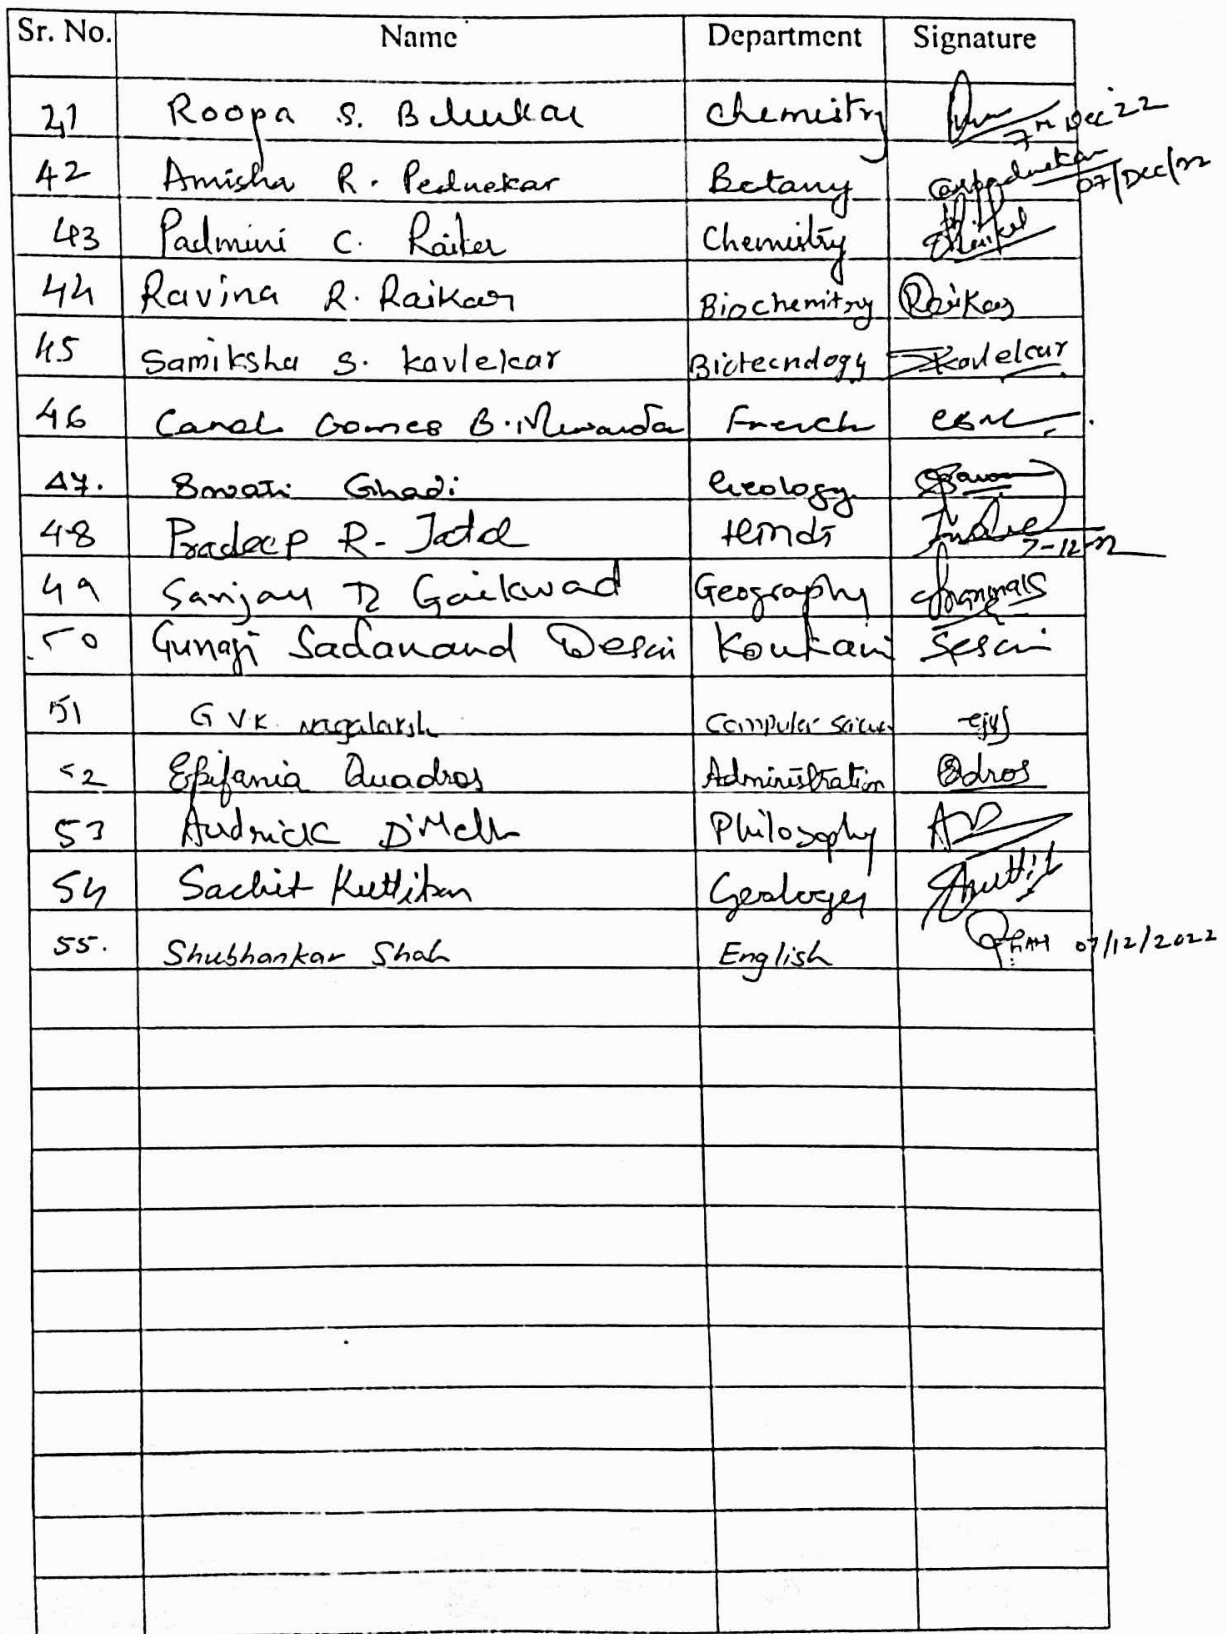 Sr. No. Name Department Signature
21 Roopa S. Belurkar Chemistry 7th Dec'22
42 Amisha R. Pednekar Botany 07/Dec/22
43 Padmini C. Raiker Chemistry
44 Ravina R. Raikar Biochemitsry Raikar
45 Samiksha S. Kavlekar Biotecnology Skavlekar
46 Canol Gomes B. Miranda French
47. Swati Ghadi Geology
48 Pradeep R. Jatal Hindi 7-12-22
49 Sanjay R Gaikwad Geography
50 Gunaji Sadanand Desai Konkani Sesai
51 G V K Computer
52 Epifania Quadros Administration Qdros
53 Audrick D'Mello Philosophy AD
54 Sachit Kuttikar
55. Shubhankar Shah English Shah 07/12/2022